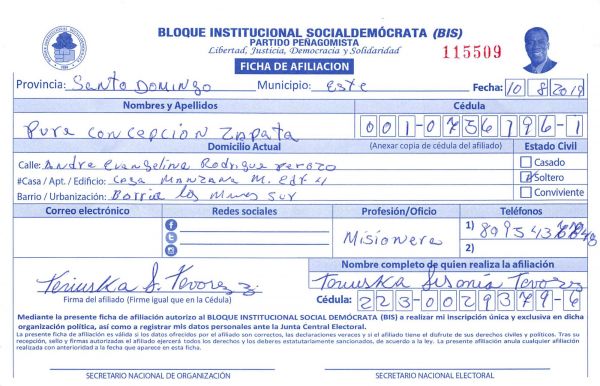 BLOQUE INSTITUCIONAL SOCIALDEMÓCRATA (BIS)
PARTIDO PEÑAGOMISTA
Libertad, Justicia, Democracia y Solidaridad
115509
FICHA DE AFILIACION
Provincia: Santo Domingo Municipio: este Fecha: 10 8 2019
Nombres y Apellidos Cédula
Pura Concepcion Zapata 001-0756796-1
Domicilio Actual (Anexar copia de cédula del afiliado) Estado Civil
Calle: Andre Evangelina Rodrigue Casado
#Casa / Apt. / Edificio: Casa Manzana M. edf 4 Soltero
Barrio / Urbanización: Barrio las Sur Conviviente
Correo electrónico Redes sociales Profesión/Oficio Teléfonos
Misionera 1)
2)
Nombre completo de quien realiza la afiliación
Firma del afiliado (Firme igual que en la Cédula)
Cédula: 223-0029379-6
Mediante la presente ficha de afiliación autorizo al BLOQUE INSTITUCIONAL SOCIAL DEMÓCRATA (BIS) a realizar mi inscripción única y exclusiva en dicha
organización política, así como a registrar mis datos personales ante la Junta Central Electoral.
La presente ficha de afiliación es válida si los datos ofrecidos por el afiliado son correctos, las declaraciones veraces y si el afiliado tiene el disfrute de sus derechos civiles y políticos. Tras su
recepción, sello y firmas autorizadas el afiliado ejercerá todos los derechos y los deberes estatutariamente sancionados, de acuerdo a la ley. La presente afiliación anula cualquier afiliación
realizada con anterioridad a la fecha que aparece en esta ficha.
SECRETARIO NACIONAL DE ORGANIZACIÓN SECRETARIO NACIONAL ELECTORAL